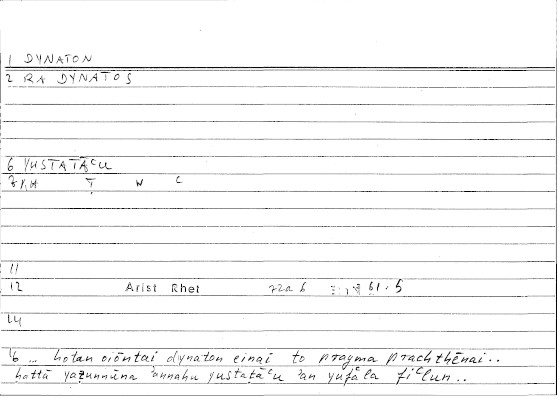 1 DYNATON
2 RA DYNATOS
6 YUSTAṬĀʿU
T W ʿ
11
12 Arist Rhet 72a 6 61,5
14
16 ... hotan oiōntai dynaton einai to pragma prachthēnai..
ḥattā yaẓunnūna ʾannahu yustaṭāʿu ʾan yufʿala fiʿlun..